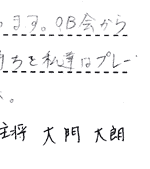 ります。OB会から
持ちを私達はプレー
す。
主将 大門 大朗